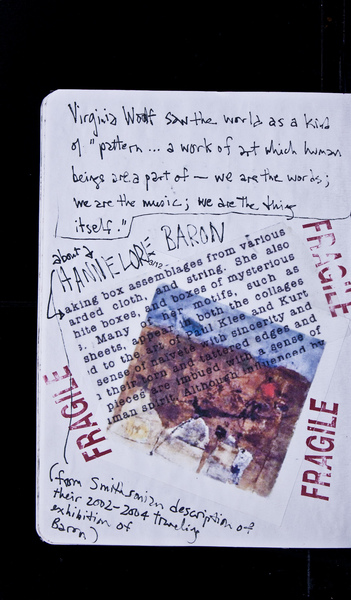 Virginia Woolf saw the world as a kind
of "pattern... a work of art which human
beings are a part of — we are the words;
we are the music; we are the thing
itself."
about
HANNELORE BARON
aking box assemblages from various
arded cloth, and string. She also
hite boxes, and boxes of mysterious
s. Many other motifs, such as
sheets, appe both the collages
d to the art of Paul Klee and Kurt
sense of naiveté with sincerity and
n their torn and tattered edges and
pieces are imbued with a sense of
uman spirit. Although influenced by
FRAGILE
FRAGILE
FRAGILE
FRAGILE
(from Smithsonian description of
their 2002-2004 traveling
exhibition of
Baron)